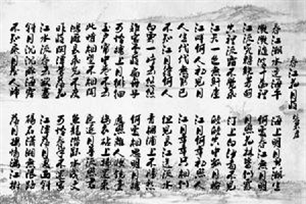 春江花月夜
春江潮水連海平 海上明月共潮生
灩灩隨波千萬里 何處春江無月明
江流宛轉繞芳甸 月照花林皆似霰
空裏流霜不覺飛 汀上白沙看不見
江天一色無纖塵 皎皎空中孤月輪
江畔何人初見月 江月何年初照人
人生代代無窮已 江月年年只相似
不知江月待何人 但見長江送流水
白雲一片去悠悠 青楓浦上不勝愁
誰家今夜扁舟子 何處相思明月樓
可憐樓上月徘徊 應照離人妝鏡臺
玉戶簾中卷不去 搗衣砧上拂還來
此時相望不相聞 願逐月華流照君
鴻雁長飛光不度 魚龍潛躍水成文
昨夜閑潭夢落花 可憐春半不還家
江水流春去欲盡 江潭落月復西斜
斜月沉沉藏海霧 碣石瀟湘無限路
不知乘月幾人歸 落月搖情滿江樹